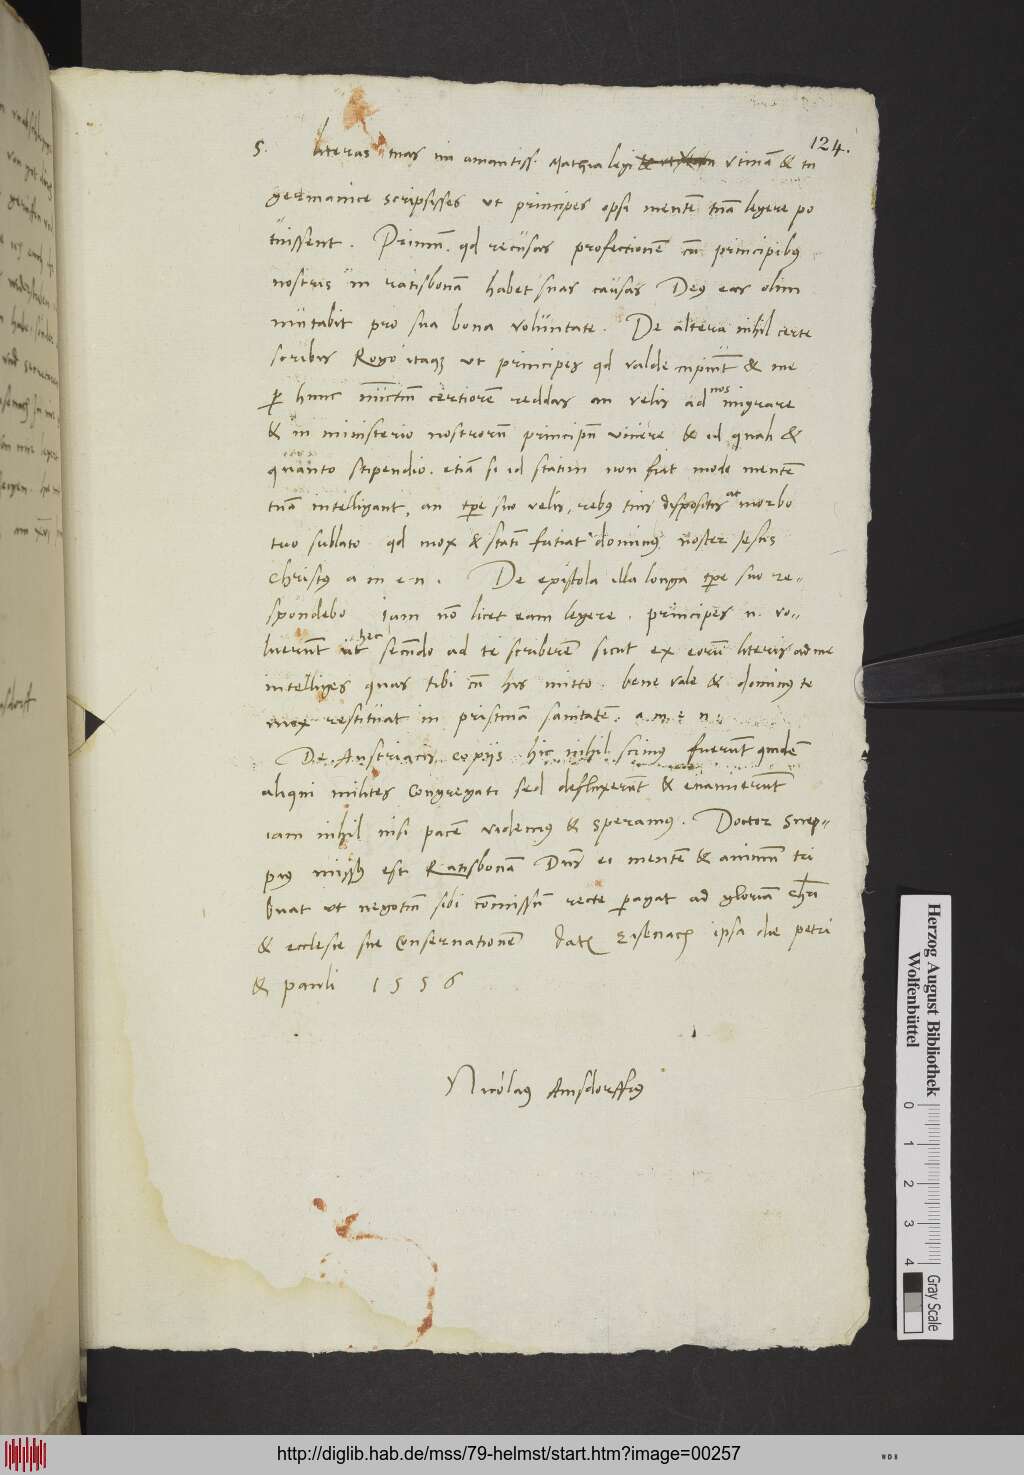 124.
S. literas tuas mi amantiss. Mathia legi utinã & tu
germanice scripsisses ut principes ipsi mentẽ tuã legere po
tuissent. Primũ qd recusas profectionẽ cũ principibus
nostris in ratisbonã habet suas causas Deus eas olim
mutabit pro sua bona voluntate. De altera nihil certe
scribis Rogo itaq ut principes qd valde cupiũt & me
p hunc nũctiũ certiorẽ reddas an velis ad nos migrare
& in ministerio nostrorũ principũ vivere & id quali &
quanto stipendio. etiã si id statim non fiat modo mentẽ
tuã intelligant, an tpe suo velis, rebus tuis dispositis ac morbo
tuo sublato qd mox & statĩ faciat dominus noster Jesus
Christus amen. De epistola illa longa tpe suo re-
spondebo iam nõ licet eam legere. principes n. vo-
luerũt ut hec secũdo ad te scriberẽ sicut ex eorũ literis ad me
intelliges quas tibi cũ his mitto. bene vale & dominus te
mox restituat in pristinã sanitatẽ. amen.
De Austriacis copiis hic nihil scimus fuerũt quidẽ
aliqui milites congregati sed defluxerũt & evanuerũt
iam nihil nisi pacẽ videmus & speramus. Doctor Snep-
pius missus est Ratisbonã Dns ei mentẽ & animũ tri
buat ut negotiũ sibi cõmissũ recte pagat ad gloriã Chri
& ecclesie sue conservationẽ datũ Eisenach ipsa die petri
& pauli 1556
Nicolaus Amsdorffius
Herzog August Bibliothek
Wolfenbüttel
0 1 2 3 4
Gray Scale
http://diglib.hab.de/mss/79-helmst/start.htm?image=00257